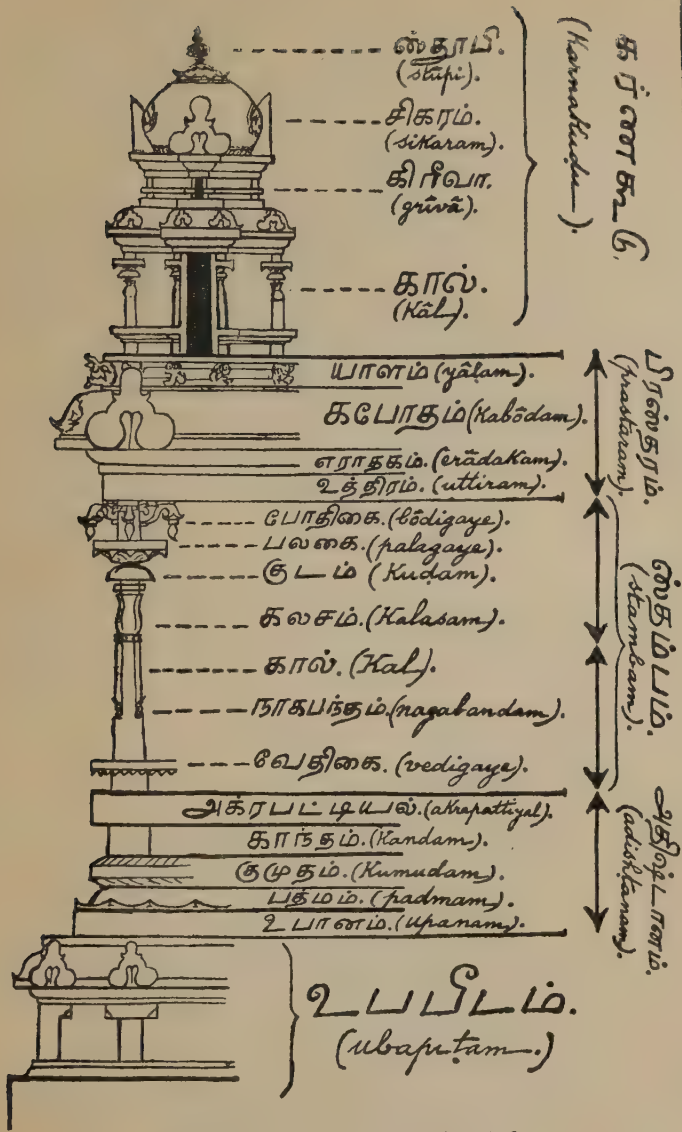 ஸ்தூபி.
(stūpi).
சிகரம்.
(sikaram).
கிரீவா.
(grīvā).
கால்.
(Kâl).
கர்ணகூடு.
(Karnakudu).
யாளம் (yâḷam).
கபோதம் (Kabōdam).
எராதகம். (erādakam).
உத்திரம். (uttiram).
பிரஸ்தரம்.
(prastāram).
போதிகை. (bōdigaye).
பலகை. (palagaye).
குடம் (Kuḍam).
கலசம். (Kalasam).
கால். (Kal).
நாகபந்தம். (nagabandam).
வேதிகை. (vedigaye).
ஸ்தம்பம்.
(stambam).
அக்ரபட்டியல். (akrapattiyal).
காந்தம். (Kandam).
குமுதம். (Kumudam).
பத்மம். (padmam).
உபானம். (upanam).
அதிஷ்டானம்.
(adishṭanam).
உபபீடம்.
(ubapiṭam.)